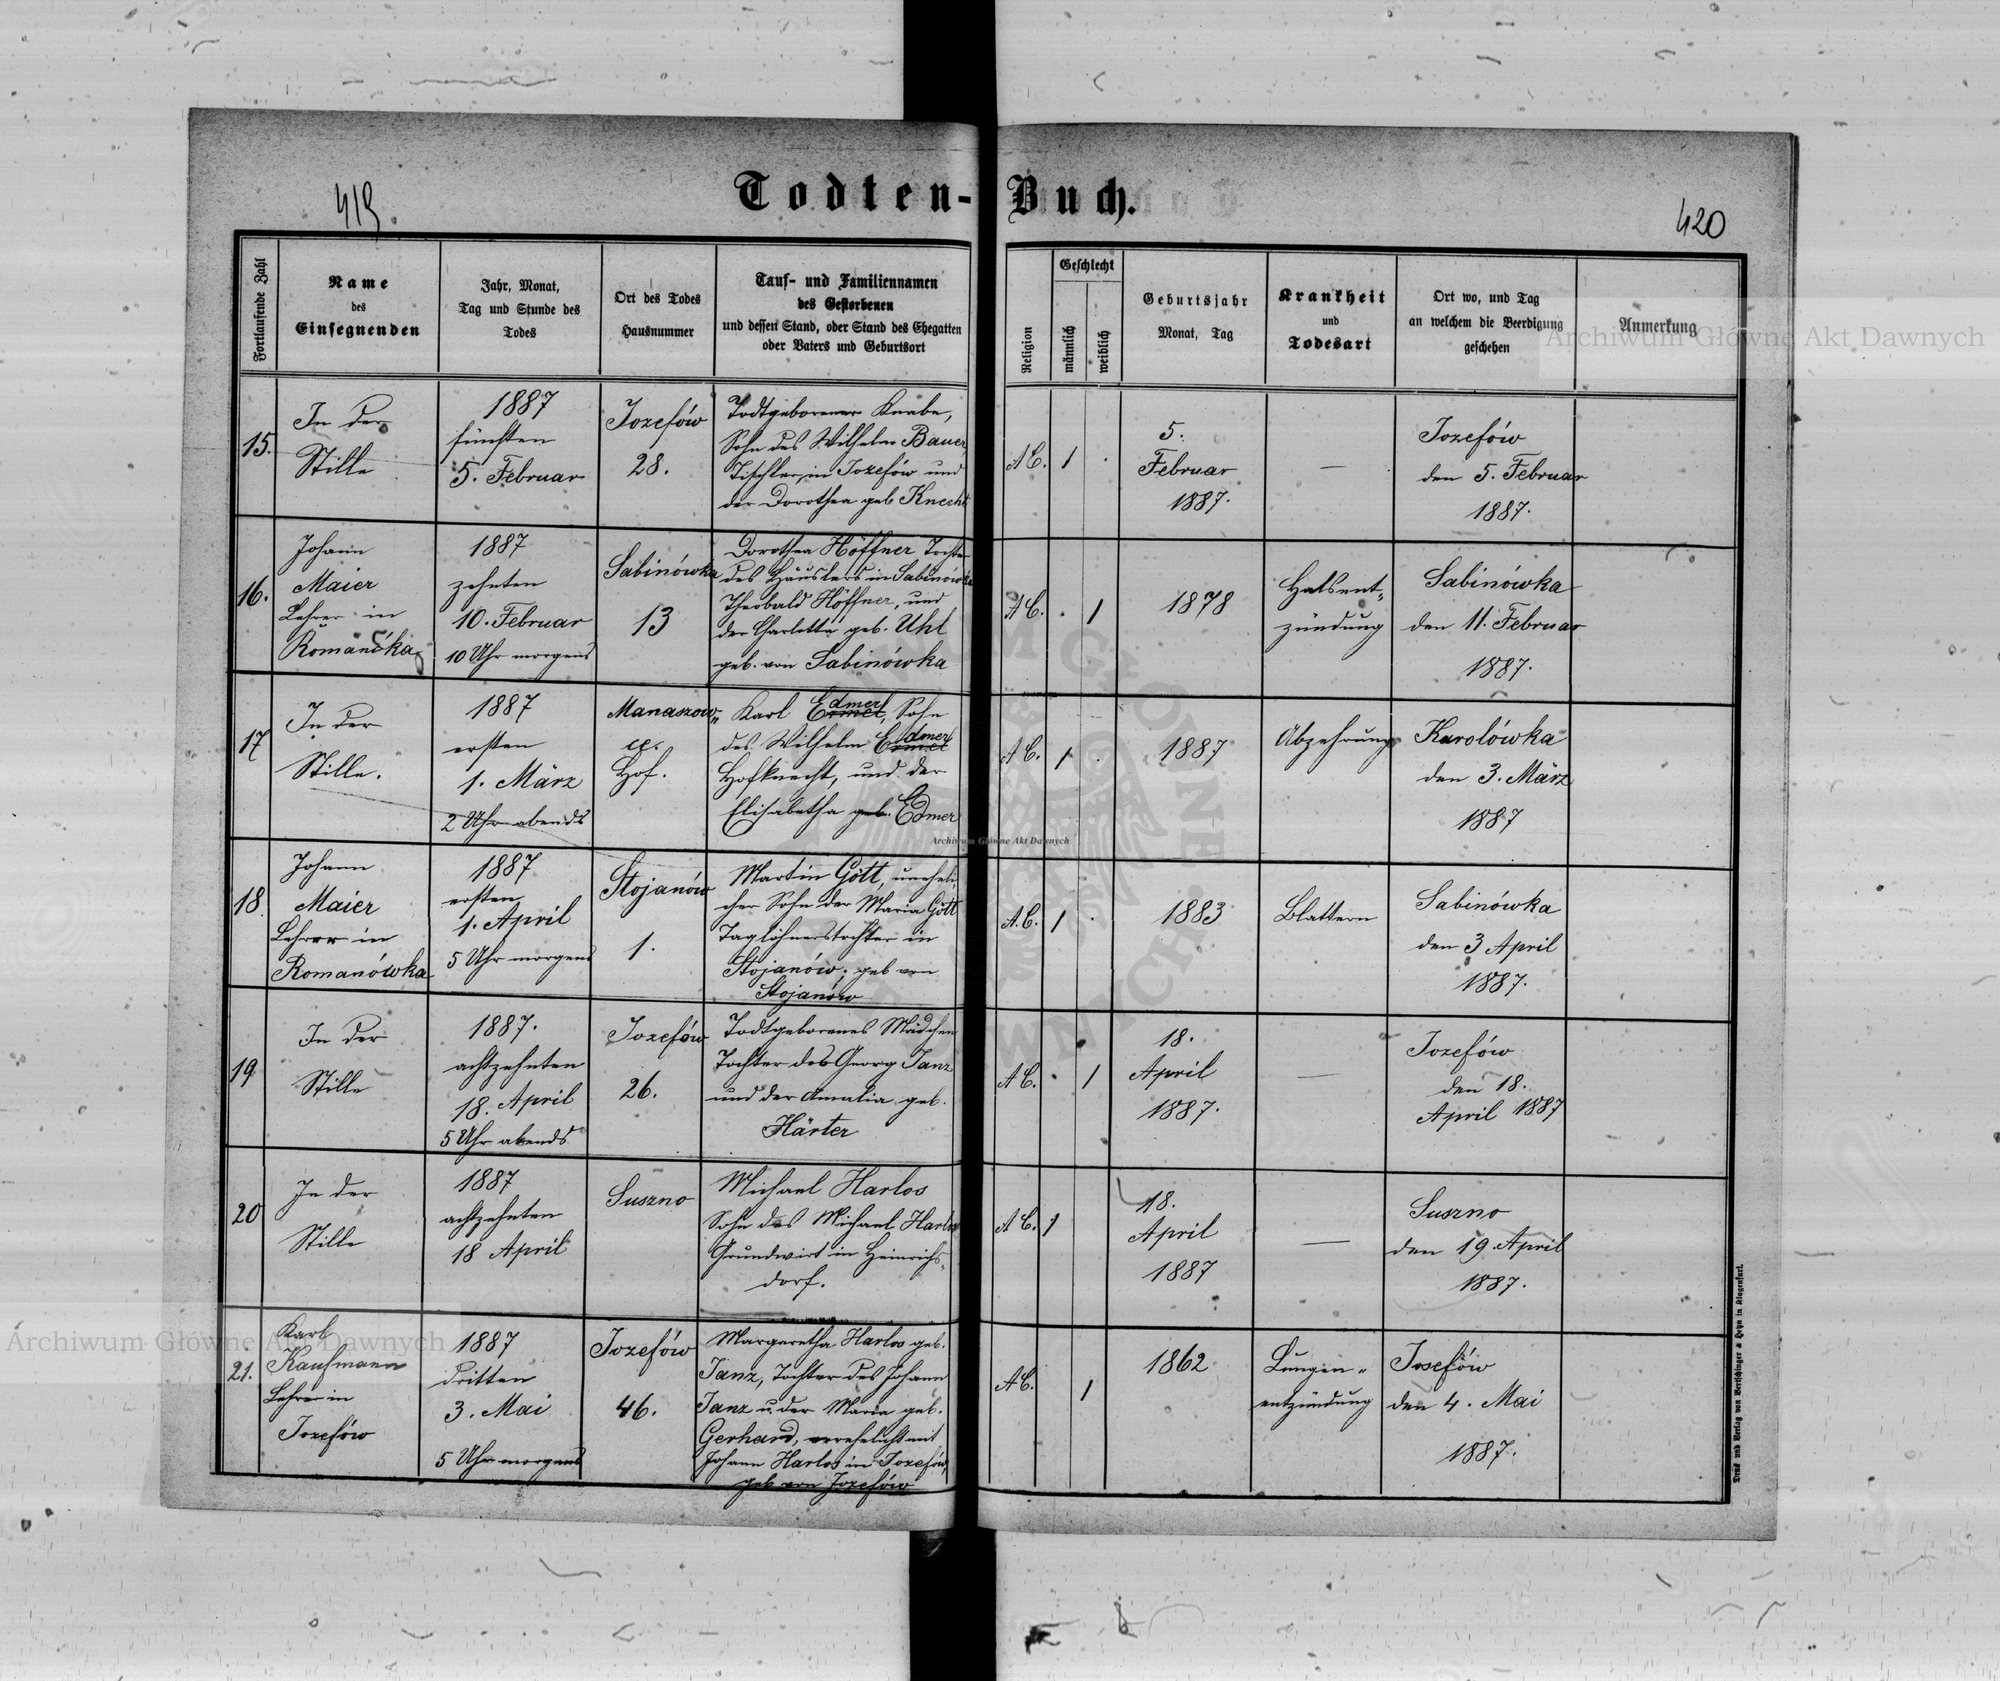 419.
Todten-Buch.
420
Fortlaufende Zahl
Name
des
Einsegnenden
Jahr, Monat,
Tag und Stunde des
Todes
Ort des Todes
Hausnummer
Tauf- und Familiennamen
des Gestorbenen
und dessen Stand, oder Stand des Ehegatten
oder Vaters und Geburtsort
Religion
Geschlecht
männlich
weiblich
Geburtsjahr
Monat, Tag
Krankheit
und
Todesart
Ort wo, und Tag
an welchem die Beerdigung
geschehen
Anmerkung
Archiwum Główne Akt Dawnych
15.
In der
Stille
1887
fünften
5. Februar
Jozefów
28.
Todtgeborener Knabe,
Sohn des Wilhelm Bauer,
Tischler in Jozefów und
der Dorothea geb Knecht
A C.
1
.
5.
Februar
1887.
—
Jozefów
den 5. Februar
1887.
16.
Johann
Maier
Lehrer in
1887
zehnten
10. Februar
10 Uhr morgens
Sabinówka
13
Dorothea Höffner Tochter
des Häuslers in Sabinówka
Theobald Höffner, und
der Charlotta geb. Uhl
geb. von Sabinówka
A C.
.
1
1878
Halsent„
zündung
Sabinówka
den 11. Februar
1887.
17
In der
Stille.
1887
ersten
1. März
2 Uhr abends
Manaszow„
ce.
Hof.
Karl Edmer, Sohn
des Wilhelm Edmer
Hofknecht, und der
Elisabetha geb. Edmer
A C.
1
.
1887
Abzehrung
Karolówka
den 3. März
1887
18.
Johann
Maier
Lehrer in
Romanówka
1887
ersten
1. April
5 Uhr morgens
Stojanów
1.
Martin Gött, uneheli„
cher Sohn der Maria Gött
Taglöhnerstochter in
Stojanów; geb von
Stojanów
A. C.
1
.
1883
Blattern
Sabinówka
den 3 April
1887.
19
In der
Stille
1887.
achtzehnten
18. April
5 Uhr abends
Jozefów
26.
Todtgeborenes Mädchen
Tochter des Georg Janz
und der Amalia geb.
Härter
A C.
.
1
18.
April
1887.
—
Jozefów
den 18.
April 1887
20
In der
Stille
1887
achtzehnten
18 April
Suszno
Michael Harlos
Sohn des Michael Harlos
Grundwirt in Heinrichs„
dorf.
A C.
1
18.
April
1887
—
Suszno
den 19. April
1887.
21.
Karl
Kaufmann
Lehrer in
Jozefów
1887
dritten
3. Mai
5 Uhr morgens
Jozefów
46.
Margaretha Harlos geb.
Janz, Tochter des Johann
Janz u. der Maria geb.
Gerhard, verehelicht mit
Johann Harlos in Jozefów,
geb von Jozefów
A C.
1
1862
Lungen„
entzündung
Josefów
den 4. Mai
1887.
Druck und Verlag von Bertschinger & Heyn in Klagenfurt.
Archiwum Główne Akt Dawnych
Archiwum Główne Akt Dawnych